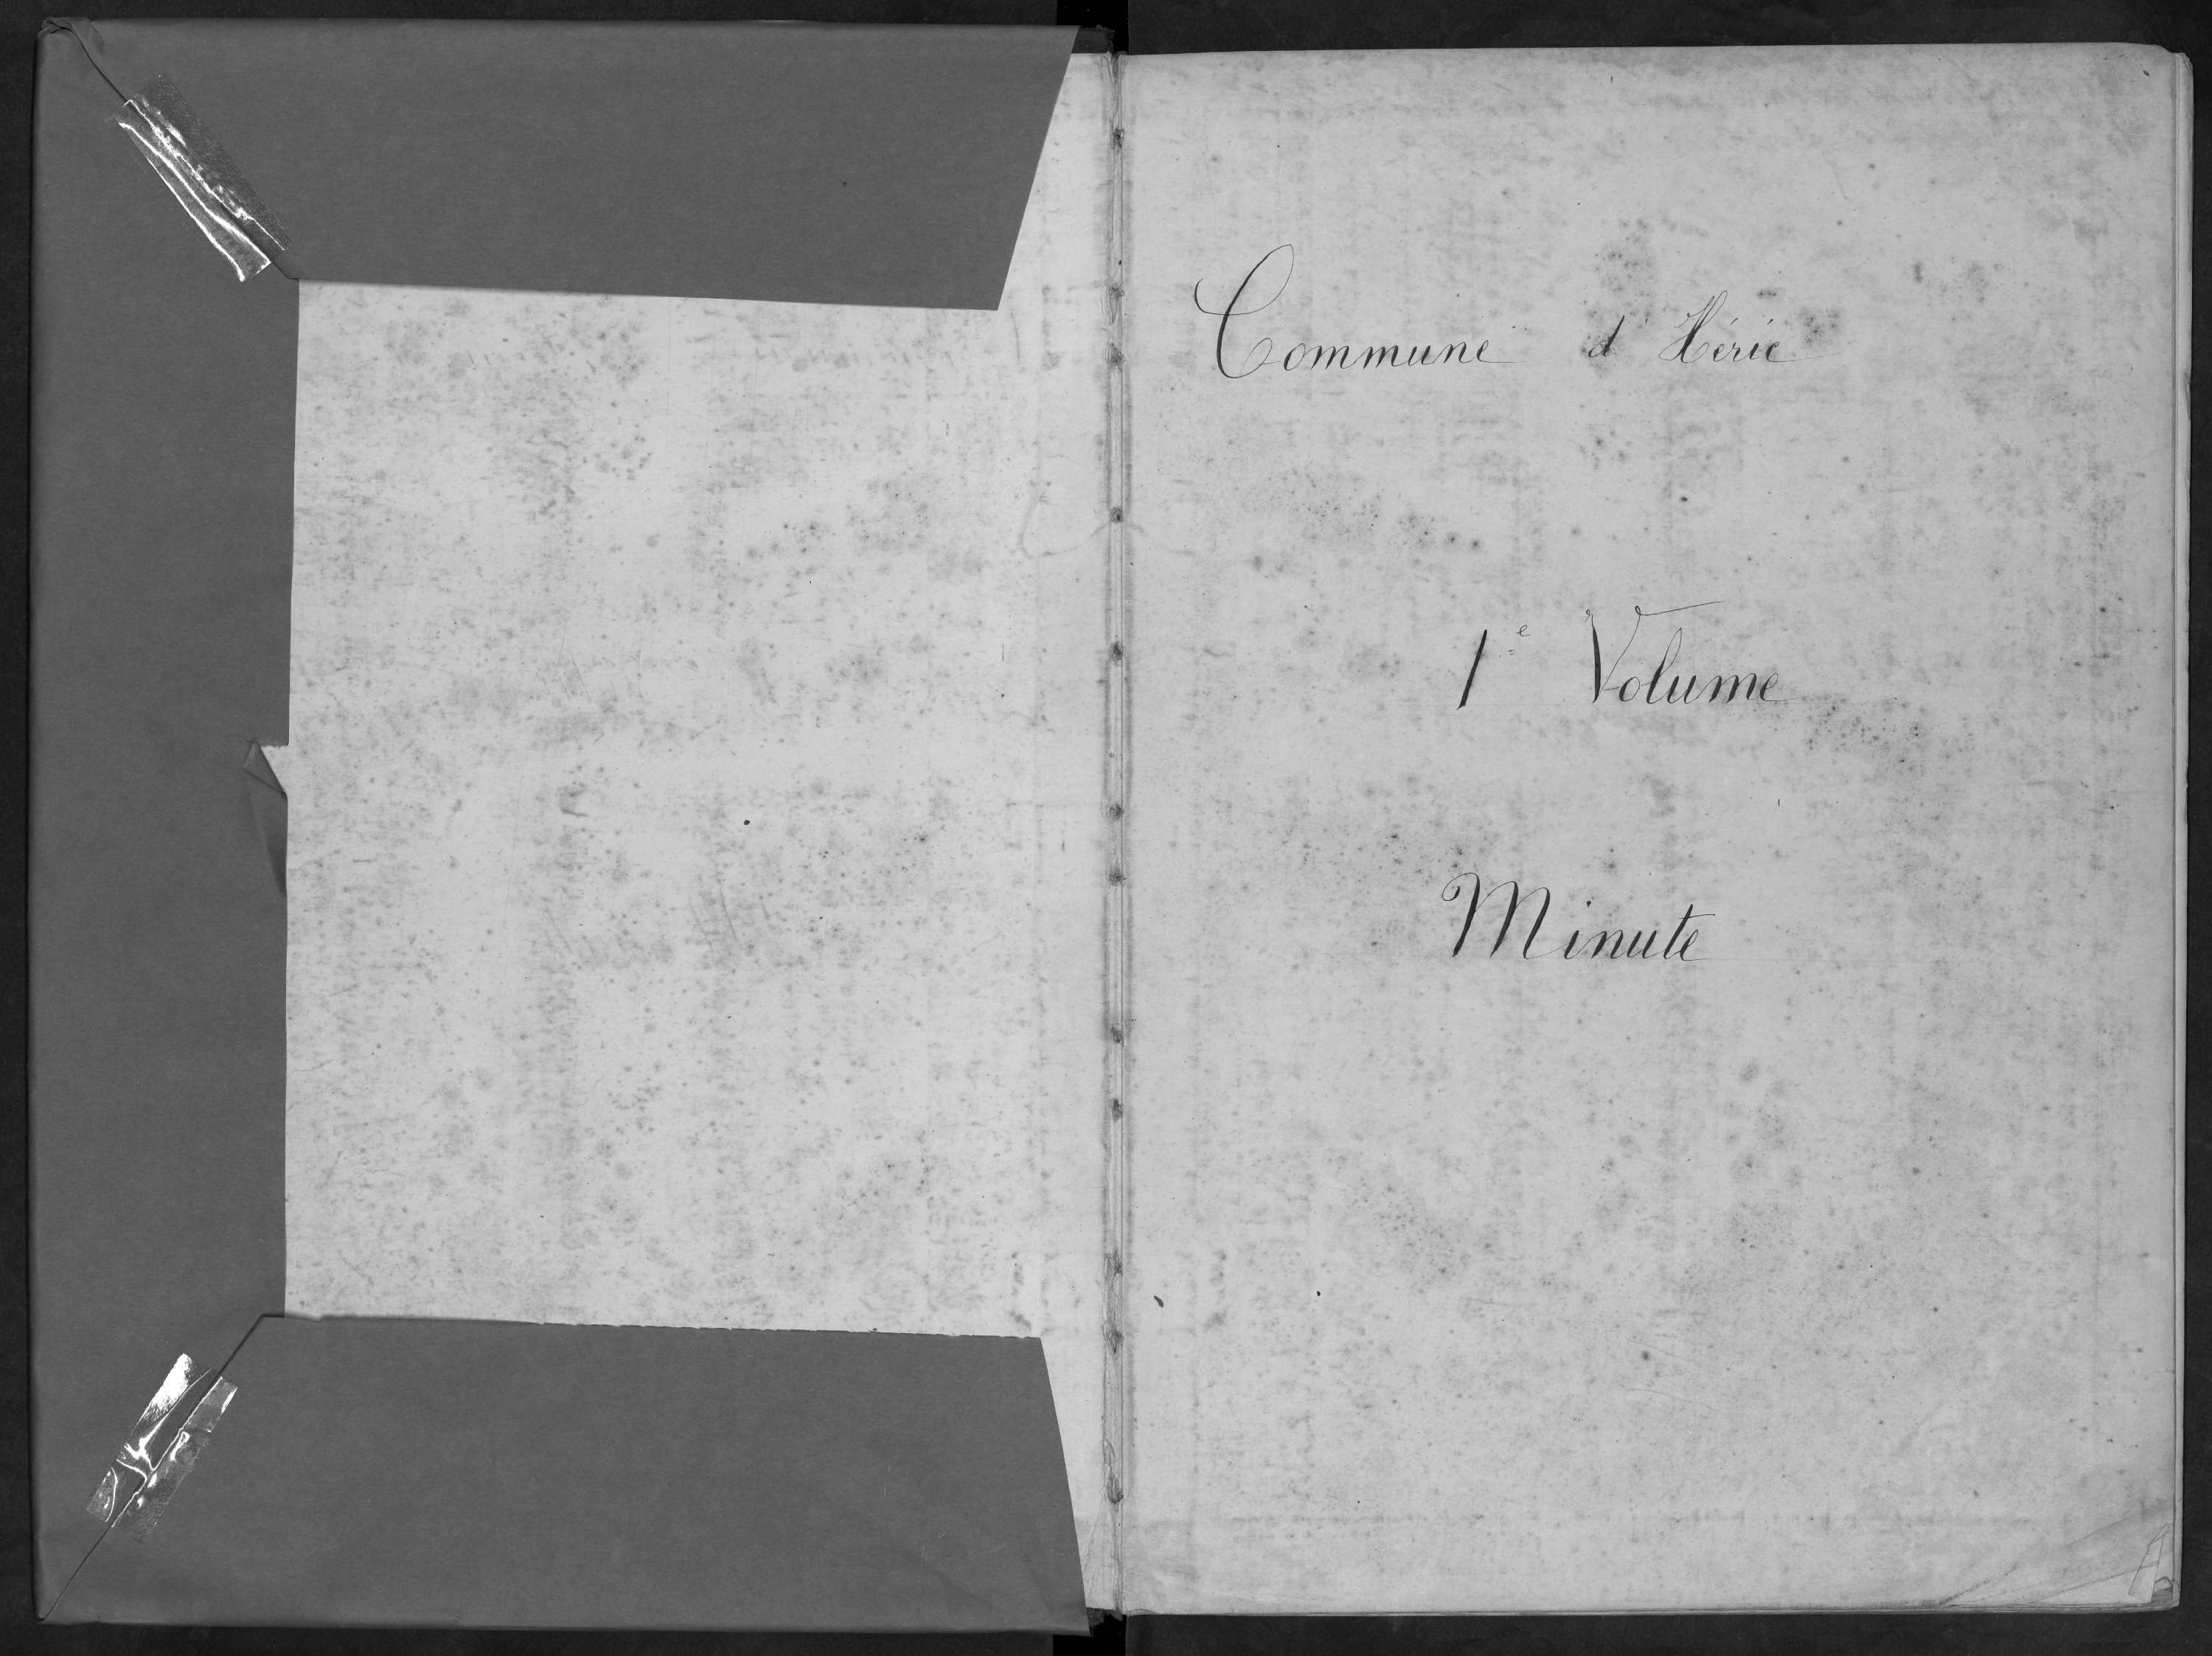 Commune d'Héric
1e Volume
Minute